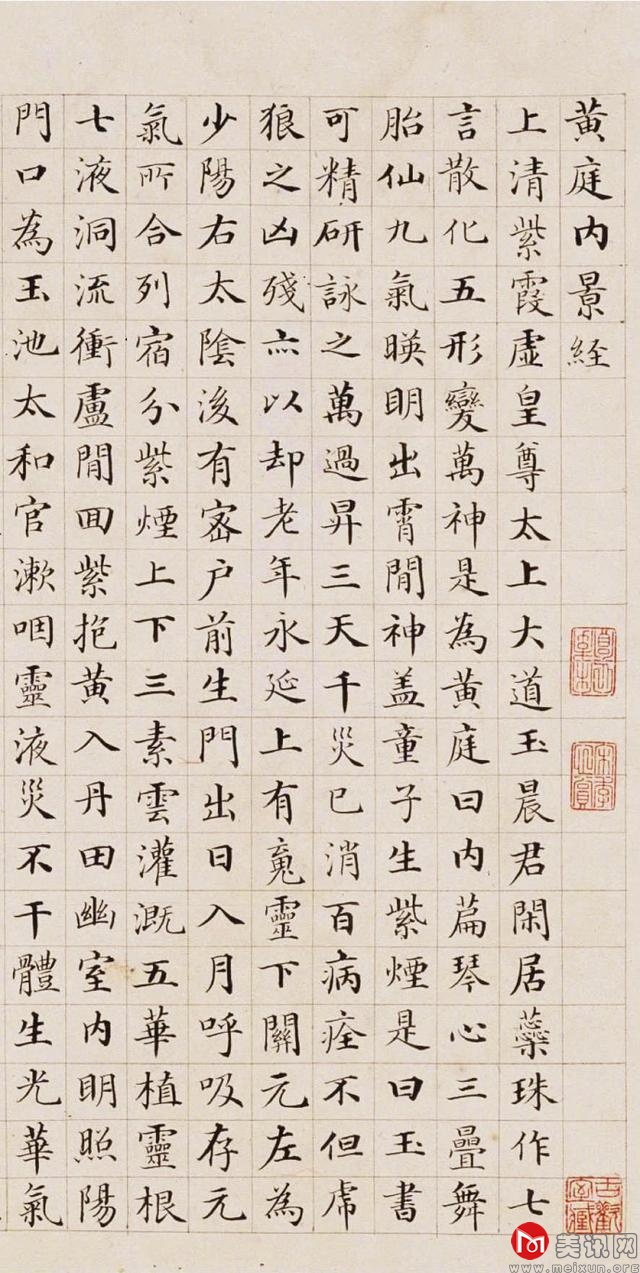 黄庭内景経
上清紫霞虛皇尊太上大道玉晨君閑居蘂珠作七
言散化五形變萬神是為黄庭曰内萹琴心三疊舞
胎仙九氣暎明出霄閒神盖童子生紫煙是曰玉書
可精研詠之萬過昇三天千災已消百病痊不但虎
狼之凶殘亦以却老年永延上有䰟靈下關元左為
少陽右太陰後有密户前生門出日入月呼吸存元
氣所合列宿分紫煙上下三素雲灌溉五華植靈根
七液洞流衝盧閒回紫抱黄入丹田幽室内明照陽
門口為玉池太和官漱咽靈液災不干體生光華氣
美讯网
www.meixun.org